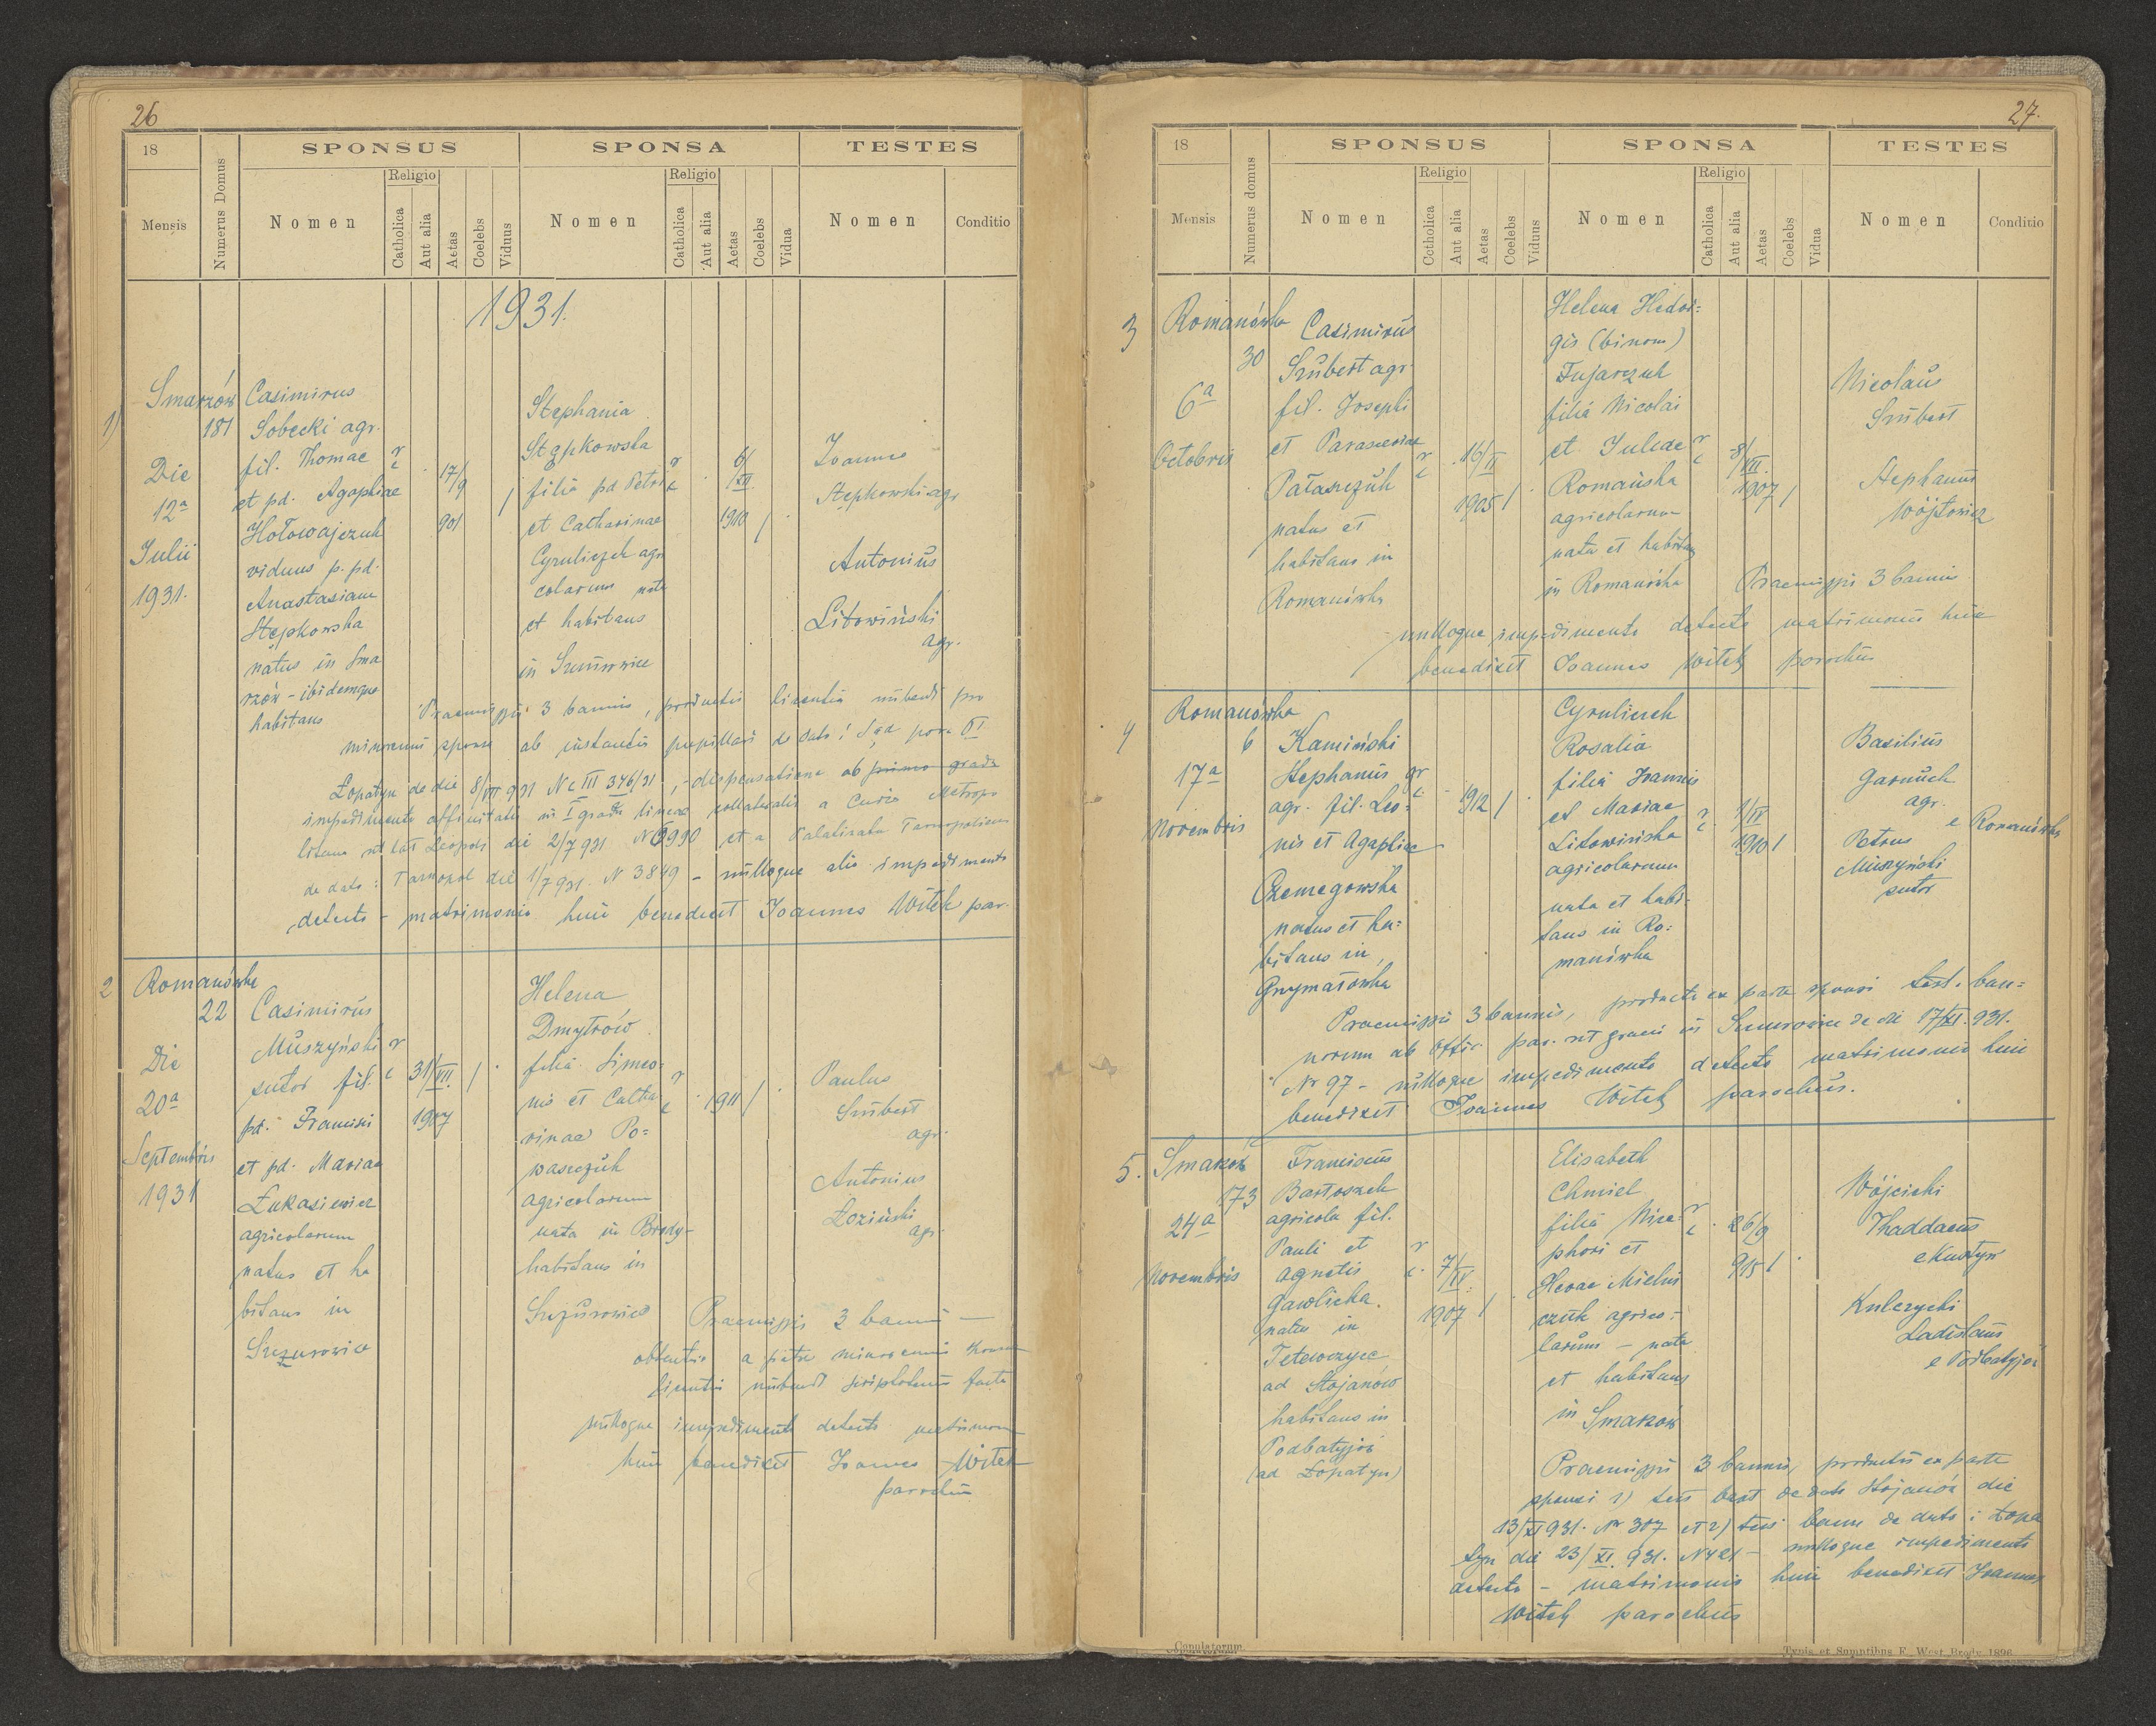 26
18
SPONSUS
SPONSA
TESTES
Mensis
Numerus Domus
Nomen
Religio
Catholica
Aut alia
Aetas
Coelebs
Viduus
Nomen
Religio
Catholica
Aut alia
Aetas
Coelebs
Vidua
Nomen
Conditio
1931.
1)
Smarzów
181
Die
12a
Julii
1931.
Casimirus
Sobecki agr.
fil. Thomae
et pd. Agaphiae
Hołowajczuk
viduus p. pd.
Anastasiam
Stępkowska
natus in Sma
rzów - ibidemque
habitans
r
c
17/9
901
Stephania
Stępkowska
filia pd Petri
et Catharinae
Cyruliczek agri
colarum nata
et habitans
in Szczurowice
r
c
6/XII
1910
Joannes
Stępkowski agr
Antonius
Litowiński
agr.
Praemissis 3 bannis, productis licentia nubendi pro
minorenni sponsa ab instantia pupillari de dato: Sąd pow.
Łopatyn de die 8/VII 931 Nc III 376/31, - dispensatione ab primo gradu
impedimento affinitatis in I gradu lineae collateralis a Curia Metropo
litana rit lat Leopoli die 2/7 931 N 6990 et a Palatinatu Tarnopoliensi
de dato: Tarnopol die 1/7 931. N 3849 - nulloque alio impedimento
detecto - matrimonio huic benedixit Joannes Witek par.
2
Romanówka
22
Die
20a
Septembris
1931
Casimirus
Muszyński
sutor fil.
pd. Francisci
et pd. Mariae
Łukasiewicz
agricolarum
natus et ha
bitans in
Szczurowice
r
c
31/VII
1907
Helena
Dmytrów
filia Simeo-
nis et Catha
rinae Po=
waszczuk
agricolarum
nata in Brody-
habitans in
Szczurowice
r
c
1911
Paulus
Szubert
agr.
Antonius
Łoziński
agr.
Praemissis 3 bannis -
obtenta a patre minorennis sponsae
licentia nubendi
nulloque impedimento detecto matrimonio
huic benedixit Joannes Witek
parochus
27.
18
SPONSUS
SPONSA
TESTES
Mensis
Numerus domus
Nomen
Religio
Cctholica
Aut alia
Aetas
Coelebs
Viduus
Nomen
Religio
Catholica
Aut alia
Aetas
Coelebs
Vidua
Nomen
Conditio
3
Romanówka
30
6a
Octobris
Casimirus
Szubert agr.
fil. Josephi
et Parasceviae
Pałaszczuk
natus et
habitans in
Romanówka
r
c
16/II
1905
Helena Hedvi=
gis (binom)
Fujarczuk
filia Nicolai
et Juliae
Romańska
agricolarum
nata et habitans
in Romanówka
r
c
8/VII.
1907
Nicolaus
Szubert
Stephanus
Wójtowicz
Praemissis 3 bannis
nulloque impedimento detecto matrimonio huic
benedixit Joannes Witek parochus
4
Romanówka
6
17a
Novembris
Kamiński
Stephanus
agr. fil. Leo=
nis et Agaphiae
natus et ha=
bitans in
Grzymałówka
gr
c
1912
Cyruliczek
Rosalia
filia Joannis
et Mariae
Litowińska
agricolarum
nata et habi-
tans in Ro=
manówka
r
c
1/IV
1910
Basilius
Garnuch
agr.
e Romanówka
Petrus
Muszyński
sutor
Praemissis 3 bannis, producto ex parte sponsi test. ban=
norum ab offic. par. rit graeci in Szczurowice de die 17/XI.931.
Nr 97 - nulloque impedimento detecto matrimonio huic
benedixit Joannes Witek parochus.
5.
Smarzów
173
24a
Novembris
Franciscus
Bartoszek
agricola fil.
Pauli et
Agnetis
Gawlicka.
natus in
Tetewczyce
ad Stojanów
habitans in
Podbatyjów
(ad Łopatyn)
r
c.
7/IV.
1907
Elisabeth
Chmiel
filia Nice
phori et
Hevae Mielni
czuk agrico-
larum - nata
et habitans
in Smarzów
r
c
26/9
915
Wójcicki
Thaddaeus
Kulczycki
Ladislaus
e Podbatyjów
Praemissis 3 bannis, productis ex parte
sponsi 1) test bant de dato Stojanów die
13/XI 931. Nr 307 et 2) test bann de dato: Łopa
tyn die 23/XI.931. N 421 - nulloque impedimento
detecto - matrimonio huic benedixit Joannes
Witek parochus
Copulatorum
Typis et Sumptibus F. West Brody 1896